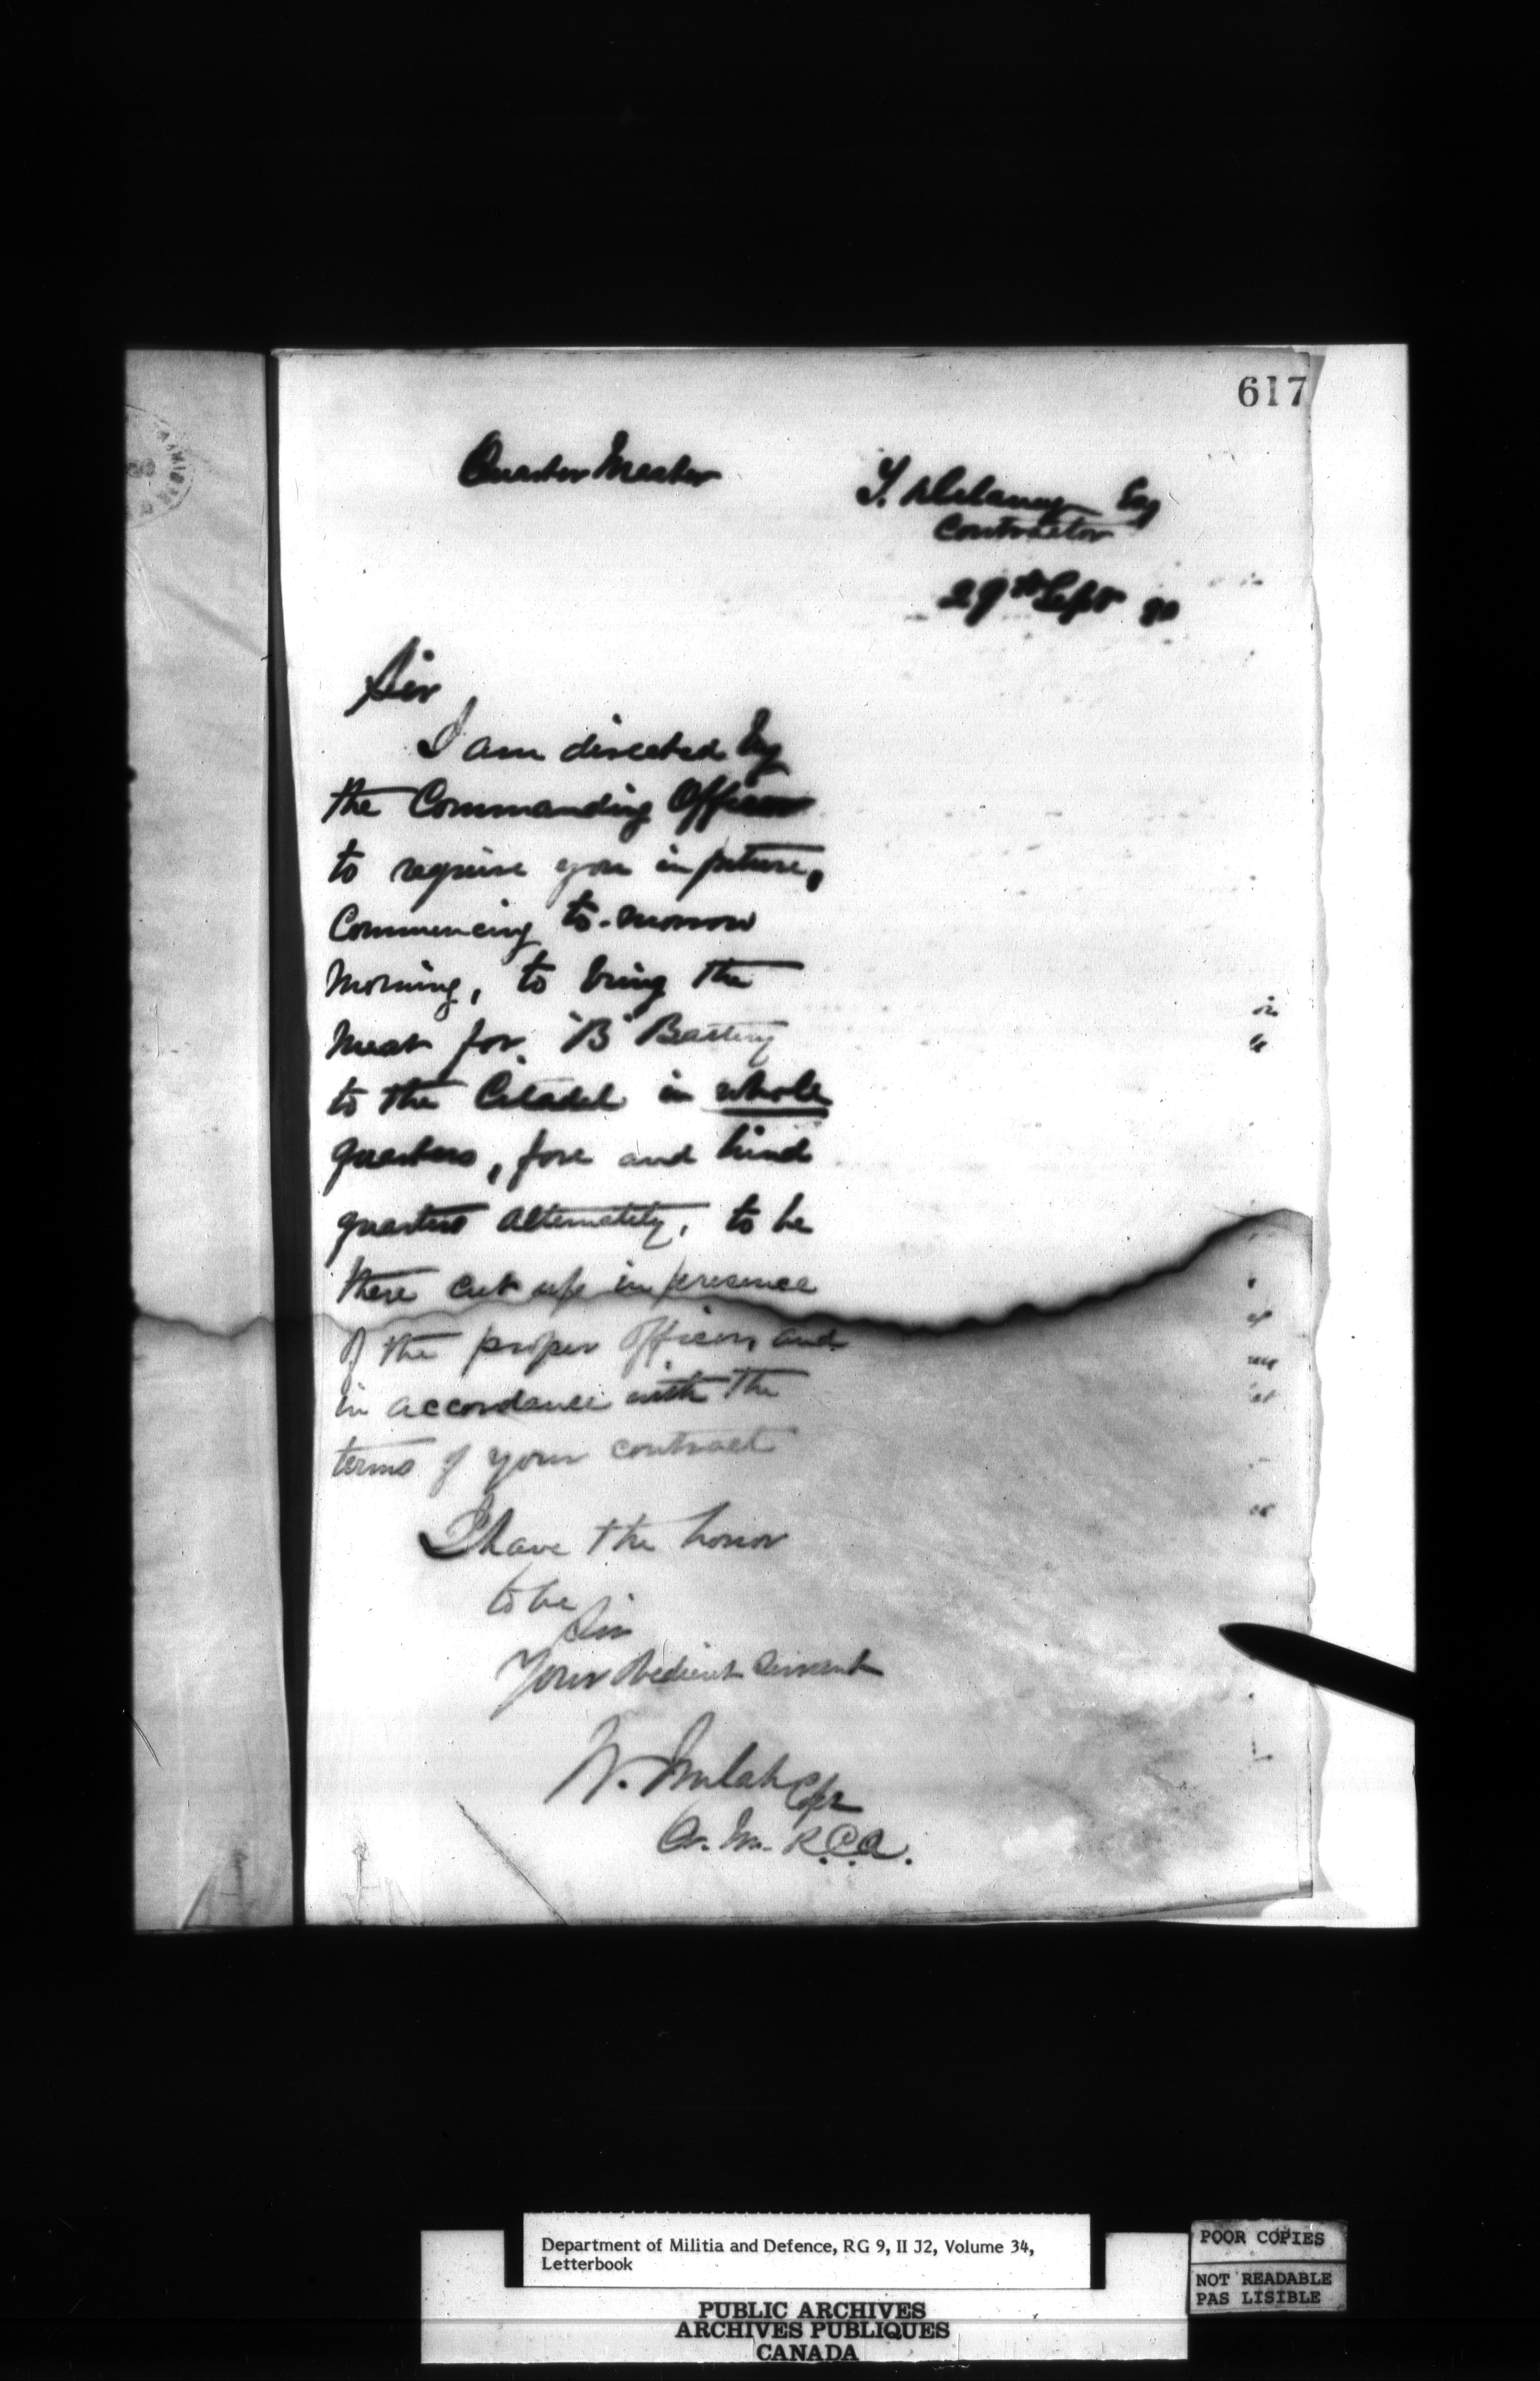 617
Quarter Master
T. Delaney Esq
Contractor
29th Sept 80
Sir
I am directed by
the Commanding Officer
to require you in future,
Commencing to-morrow
Morning, to bring the
Meat for "B" Battery
to the Citadel in whole
quarters, fore and hind
quarters alternately, to be
there cut up in presence
of the proper Officers and
in accordance with the
terms of your contract
I have the honor
to be
Sir
Your Obedient Servant
Capt
Q. M. R.C.A.
Department of Militia and Defence, RG 9, II J2, Volume 34,
Letterbook
POOR COPIES
NOT READABLE
PAS LISIBLE
PUBLIC ARCHIVES
ARCHIVES PUBLIQUES
CANADA